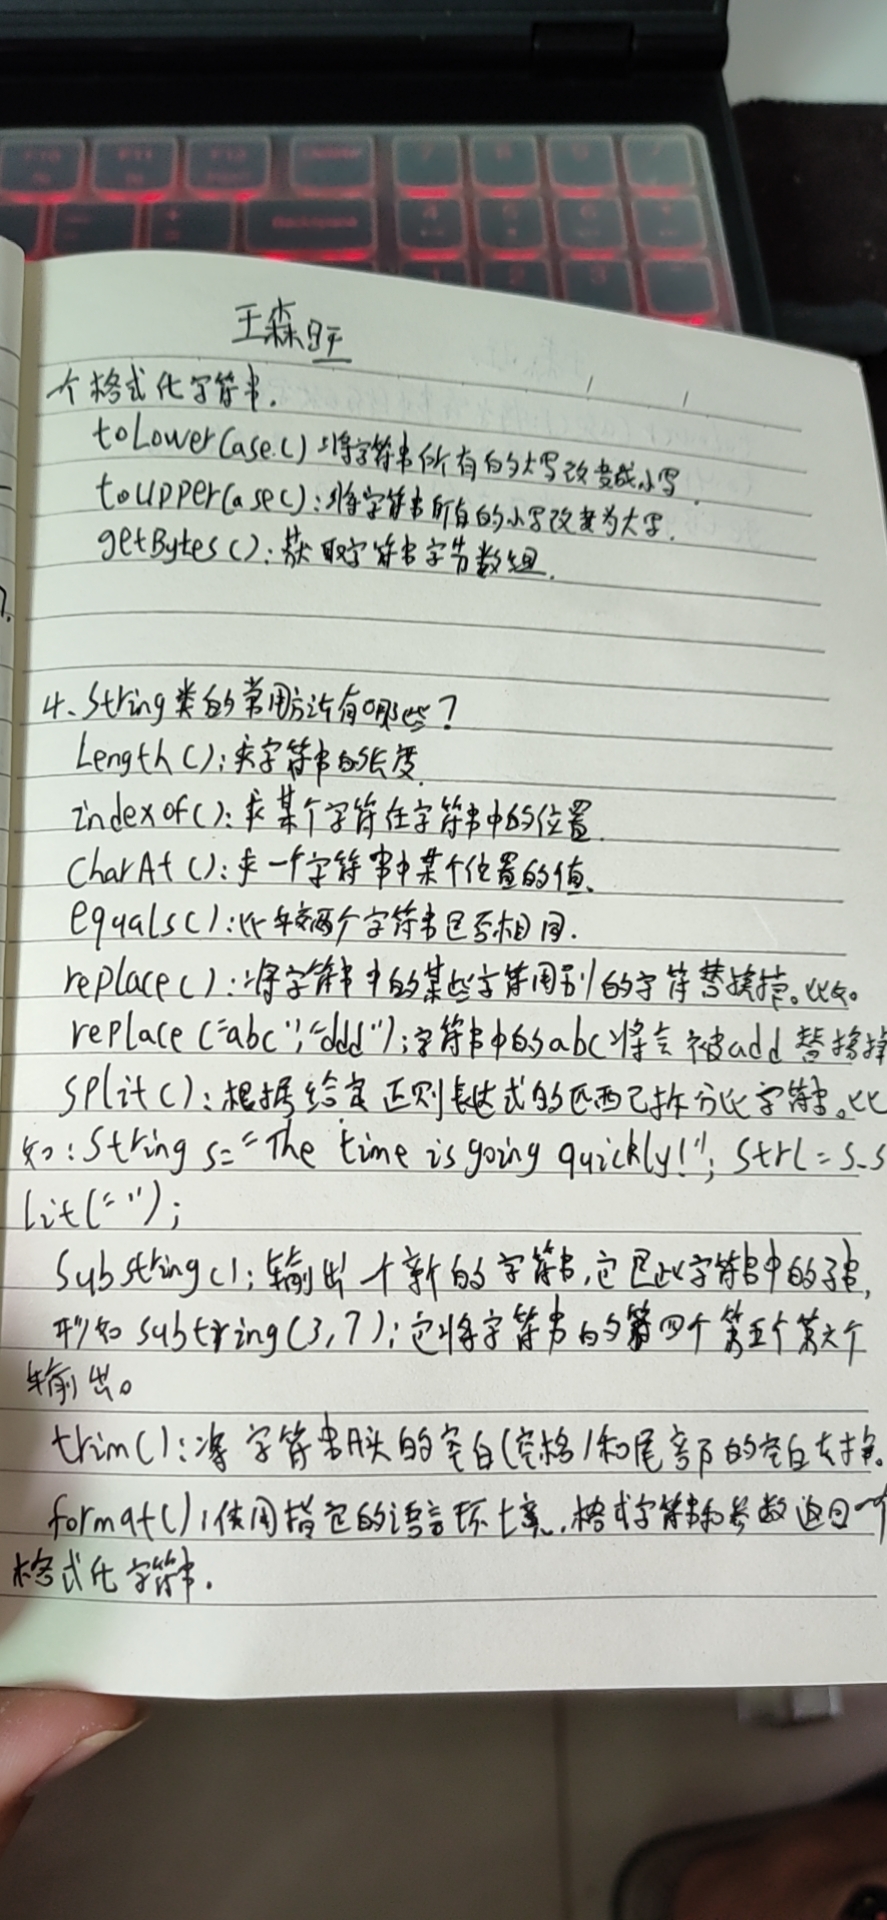 王森旺
个格式化字符串.
toLowerCase():将字符串所有的大写改变成小写.
toUpperCase():将字符串所有的小写改变为大写.
getBytes():获取字符串字节数组.
4、String类的常用方法有哪些?
Length():求字符串的长度.
indexof():求某个字符在字符串中的位置.
CharAt():求一个字符串中某个位置的值、
equals():比较两个字符串是否相同.
replace():将字符串中的某些字符用别的字符替换掉。比如。
replace("abc";"ddd");字符串中的abc将会被add替换掉
split():根据给定正则表达式的匹西己拆分此字符串。比
如:String s="The time is going quickly!"; Strl=s.s
lit(" ");
Substring():输出一个新的字符串,它是此字符串中的子串,
形如 subtring(3,7);它将字符串的第四个第五个第六个
输出。
trim():将字符串开头的空白(空格)和尾部的空白去掉。
format();使用指定的语言环境.格式字符串和参数返回一个
格式化字符串.